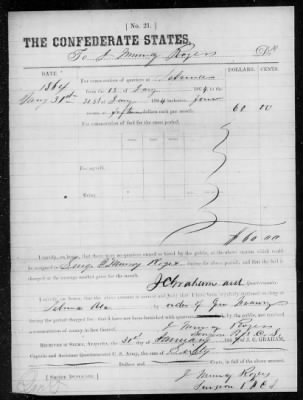 [No. 21.]
THE CONFEDERATE STATES,
To J Murray Rogers Dr.
DATE. DOLLARS. CENTS.
1864 For commutation of quarters at Selma
from the 1864, to
31st 1864 inclusive, four
rooms @ fifteen dollars each per month. 60 00
For commutation of fuel for the same period.
$60.00
I certify, on honor, that there were no quarters owned or hired by the public, at the above station which could
be assigned to Surgn J Murray Rogers during the above period, and that fuel is
charged at the average market price for the month.
J C Graham
Quartermaster.
I certify, on honor, that the above account is correct
Selma Ala by order of Gen
during the period charged for; that I have not been furnished with quarters,
commutation of money in lieu thereof.
J Murray Rogers
Surgeon P.A.C.S.
RECEIVED at SELMA, ALABAMA, 31st of January J. C. GRAHAM,
Captain and Assistant Quartermaster C. S. Army, the sum of Sixty
Dollars and Cents, in full of the above account.
[SIGNED DUPLICATES.]
J Murray Rogers
Surgeon P A C S